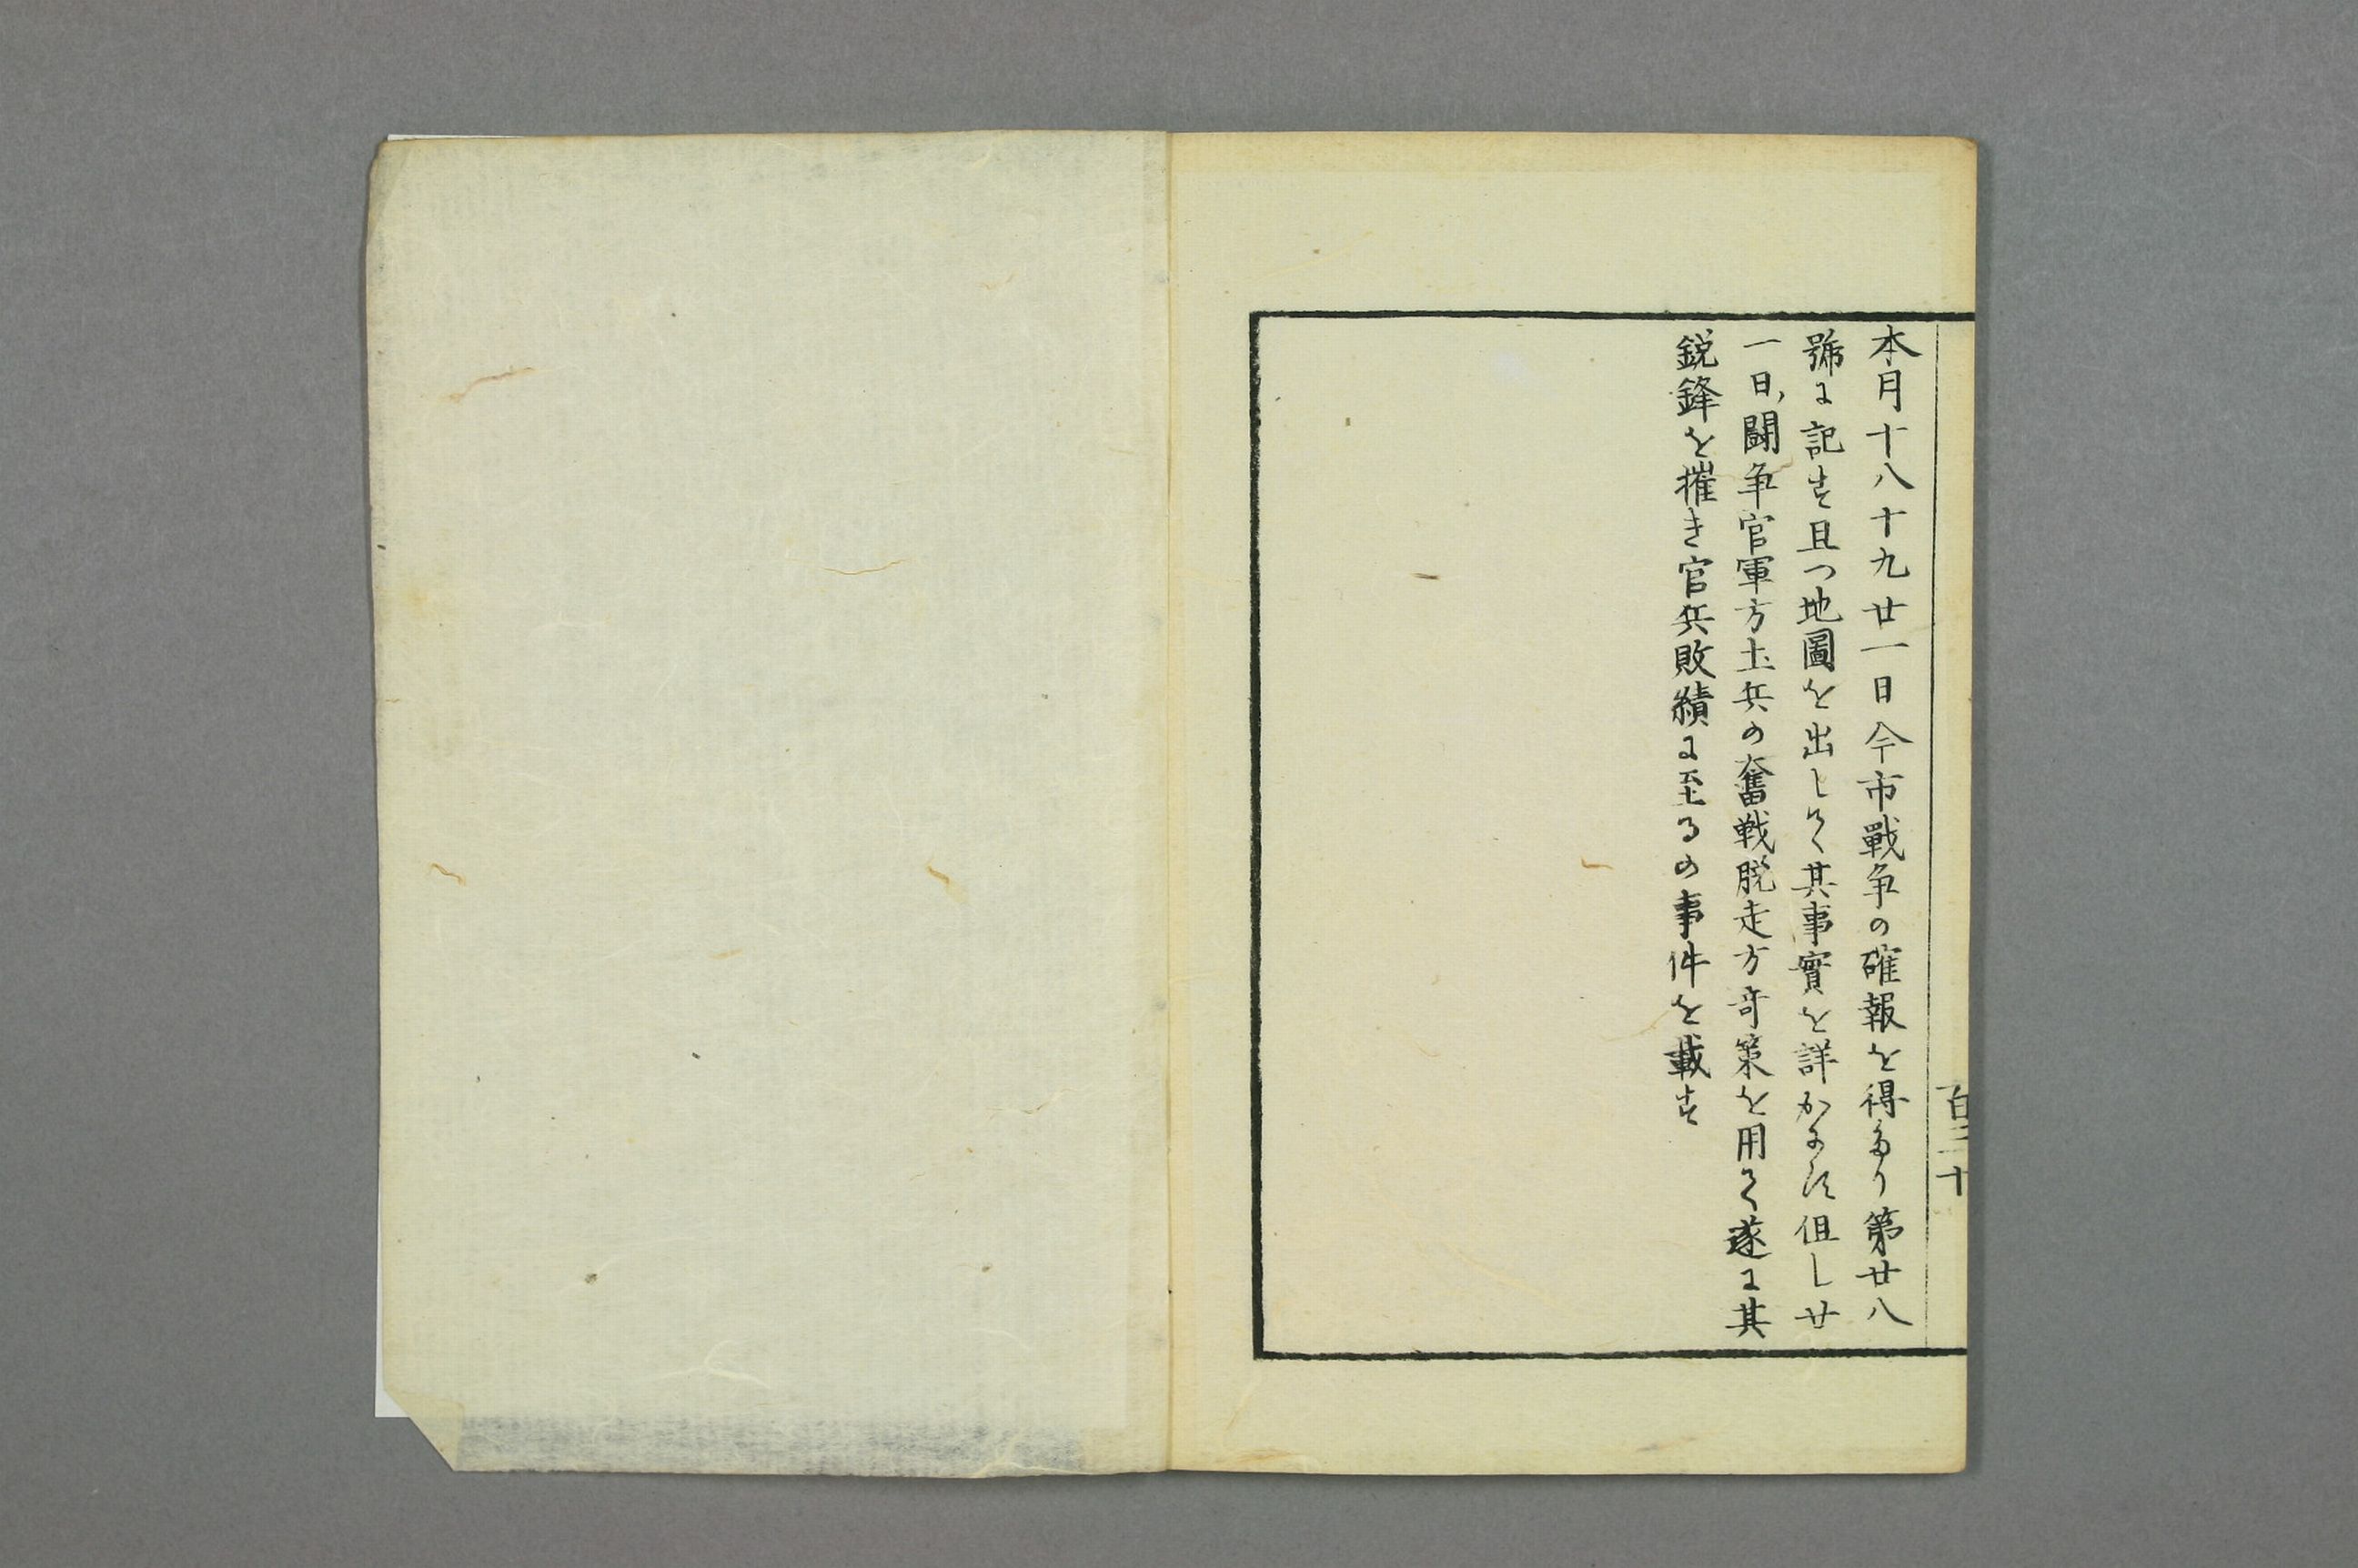 本月十八十九廿一日今市戰争の確報を得たり第廿八
號に記す且つ地圖を出して其事實を詳かにす但し廿
一日、闘争官軍方土兵の奮戦脱走方奇策を用て遂に其
鋭鋒を摧き官兵敗績に至るの事件を載す
百三十